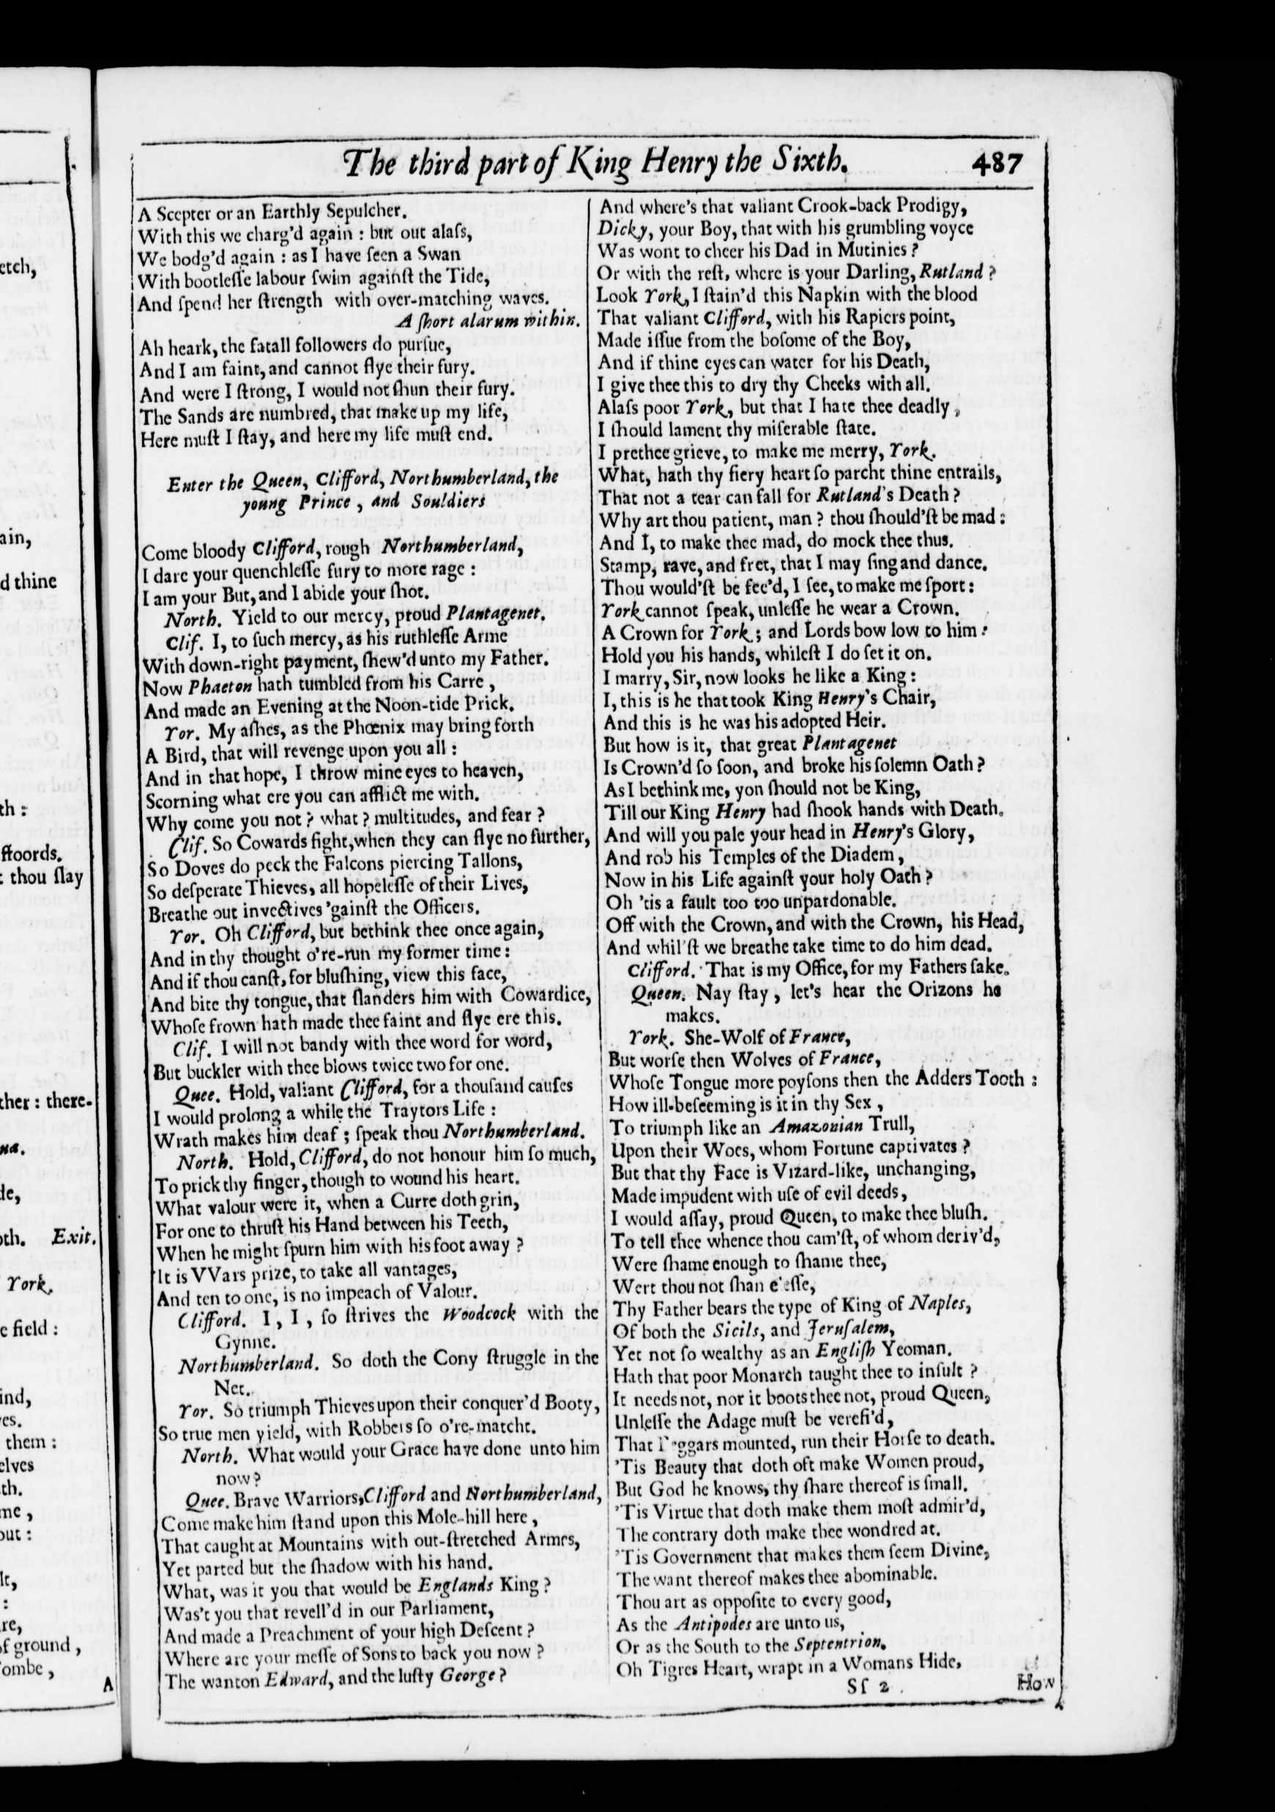 etch,
ain,
d thine
th:
ffoords.
: thou ſlay
ther: there-
na.
de,
oth. Exit.
York,
e field:
ind,
ves.
them:
elves
th.
me,
out:
lt,
:
are,
of ground,
ombe,
A
The third part of King Henry the Sixth. 487
A Scepter or an Earthly Sepulcher.
With this we charg'd again: but out alaſs,
We bodg'd again: as I have ſeen a Swan
With bootleſſe labour ſwim againſt the Tide,
And ſpend her ſtrength with over-matching waves.
A ſhort alarum within.
Ah heark, the fatall followers do purſue,
And I am faint, and cannot flye their fury.
And were I ſtrong, I would not ſhun their fury.
The Sands are numbred, that make up my life,
Here muſt I ſtay, and here my life muſt end.
Enter the Queen, Clifford, Northumberland, the
young Prince, and Souldiers
Come bloody Clifford, rough Northumberland,
I dare your quenchleſſe fury to more rage:
I am your But, and I abide your ſhot.
North. Yield to our mercy, proud Plantagenet.
Clif. I, to ſuch mercy, as his ruthleſſe Arme
With down-right payment, ſhew'd unto my Father.
Now Phaeton hath tumbled from his Carre,
And made an Evening at the Noon-tide Prick.
Yor. My aſhes, as the Phœnix may bring forth
A Bird, that will revenge upon you all:
And in that hope, I throw mine eyes to heaven,
Scorning what ere you can afflict me with.
Why come you not? what? multitudes, and fear?
Clif. So Cowards fight, when they can flye no further,
So Doves do peck the Falcons piercing Tallons,
So deſperate Thieves, all hopeleſſe of their Lives,
Breathe out invectives 'gainſt the Officers.
Yor. Oh Clifford, but bethink thee once again,
And in thy thought o're-run my former time:
And if thou canſt, for bluſhing, view this face,
And bite thy tongue, that ſlanders him with Cowardice,
Whoſe frown hath made thee faint and flye ere this.
Clif. I will not bandy with thee word for word,
But buckler with thee blows twice two for one.
Quee. Hold, valiant Clifford, for a thouſand cauſes
I would prolong a while the Traytors Life:
Wrath makes him deaf; ſpeak thou Northumberland.
North. Hold, Clifford, do not honour him ſo much,
To prick thy finger, though to wound his heart.
What valour were it, when a Curre doth grin,
For one to thruſt his Hand between his Teeth,
When he might ſpurn him with his foot away?
It is VVars prize, to take all vantages,
And ten to one, is no impeach of Valour.
Clifford. I, I, ſo ſtrives the Woodcock with the
Gynne.
Northumberland. So doth the Cony ſtruggle in the
Net.
Yor. So triumph Thieves upon their conquer'd Booty,
So true men yield, with Robbers ſo o're-matcht.
North. What would your Grace have done unto him
now?
Quee. Brave Warriors, Clifford and Northumberland,
Come make him ſtand upon this Mole-hill here,
That caught at Mountains with out-ſtretched Armes,
Yet parted but the ſhadow with his hand.
What, was it you that would be Englands King?
Was't you that revell'd in our Parliament,
And made a Preachment of your high Deſcent?
Where are your meſſe of Sons to back you now?
The wanton Edward, and the luſty George?
And where's that valiant Crook-back Prodigy,
Dicky, your Boy, that with his grumbling voyce
Was wont to cheer his Dad in Mutinies?
Or with the reſt, where is your Darling, Rutland?
Look York, I ſtain'd this Napkin with the blood
That valiant Clifford, with his Rapiers point,
Made iſſue from the boſome of the Boy,
And if thine eyes can water for his Death,
I give thee this to dry thy Cheeks withall.
Alaſs poor York, but that I hate thee deadly,
I ſhould lament thy miſerable ſtate.
I prethee grieve, to make me merry, York.
What, hath thy fiery heart ſo parcht thine entrails,
That not a tear can fall for Rutland's Death?
Why art thou patient, man? thou ſhould'ſt be mad:
And I, to make thee mad, do mock thee thus.
Stamp, rave, and fret, that I may ſing and dance.
Thou would'ſt be fee'd, I ſee, to make me ſport:
York cannot ſpeak, unleſſe he wear a Crown.
A Crown for York; and Lords bow low to him:
Hold you his hands, whileſt I do ſet it on.
I marry, Sir, now looks he like a King:
I, this is he that took King Henry's Chair,
And this is he was his adopted Heir.
But how is it, that great Plantagenet
Is Crown'd ſo ſoon, and broke his ſolemn Oath?
As I bethink me, yon ſhould not be King,
Till our King Henry had ſhook hands with Death.
And will you pale your head in Henry's Glory,
And rob his Temples of the Diadem,
Now in his Life againſt your holy Oath?
Oh 'tis a fault too too unpardonable.
Off with the Crown, and with the Crown, his Head,
And whil'ſt we breathe take time to do him dead.
Clifford. That is my Office, for my Fathers ſake.
Queen. Nay ſtay, let's hear the Orizons he
makes.
York. She-Wolf of France,
But worſe then Wolves of France,
Whoſe Tongue more poyſons then the Adders Tooth:
How ill-beſeeming is it in thy Sex,
To triumph like an Amazonian Trull,
Upon their Woes, whom Fortune captivates?
But that thy Face is Vizard-like, unchanging,
Made impudent with uſe of evil deeds,
I would aſſay, proud Queen, to make thee bluſh.
To tell thee whence thou cam'ſt, of whom deriv'd,
Were ſhame enough to ſhame thee,
Wert thou not ſhan e'eſſe,
Thy Father bears the type of King of Naples,
Of both the Sicils, and Jeruſalem,
Yet not ſo wealthy as an Engliſh Yeoman.
Hath that poor Monarch taught thee to inſult?
It needs not, nor it boots thee not, proud Queen,
Unleſſe the Adage muſt be verefi'd,
That Beggars mounted, run their Horſe to death.
'Tis Beauty that doth oft make Women proud,
But God he knows, thy ſhare thereof is ſmall.
'Tis Virtue that doth make them moſt admir'd,
The contrary doth make thee wondred at.
'Tis Government that makes them ſeem Divine,
The want thereof makes thee abominable.
Thou art as oppoſite to every good,
As the Antipodes are unto us,
Or as the South to the Septentrion.
Oh Tigres Heart, wrapt in a Womans Hide,
Sſ 2
How